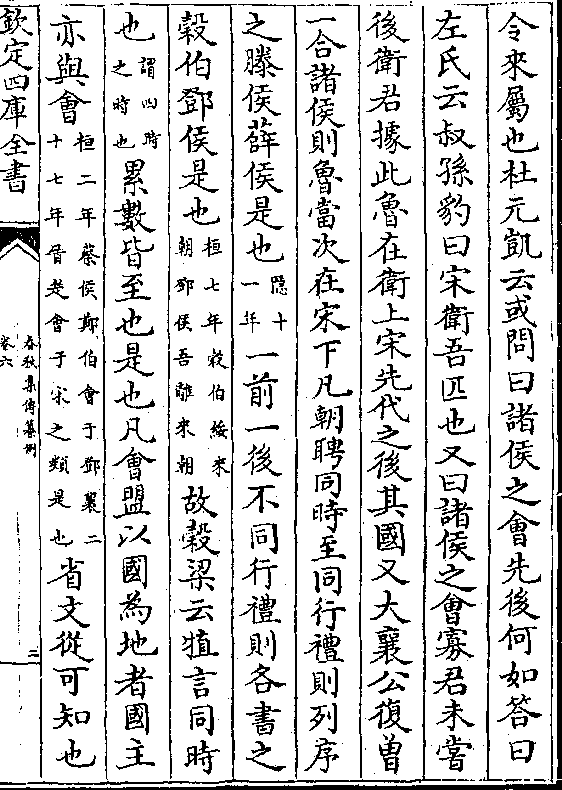 令來屬也杜元凱云或問曰諸侯之會先後何如答曰
左氏云叔孫豹曰宋衛吾匹也又曰諸侯之會寡君未嘗
後衛君據此魯在衛上宋先代之後其國又大襄公復曾
一合諸侯則魯當次在宋下凡朝聘同時至同行禮則列序
之滕侯薛侯是也隱十一年一前一後不同行禮則各書之
穀伯鄧侯是也桓七年穀伯綏來朝鄧侯吾離來朝故穀梁云犆言同時
也謂四時之時也累數皆至也是也凡會盟以國為地者國主
亦與會桓二年蔡侯鄭伯會于鄧襄二十七年晉楚會于宋之類是也省文從可知也
欽定四庫全書
春秋集傳纂例
卷六
二